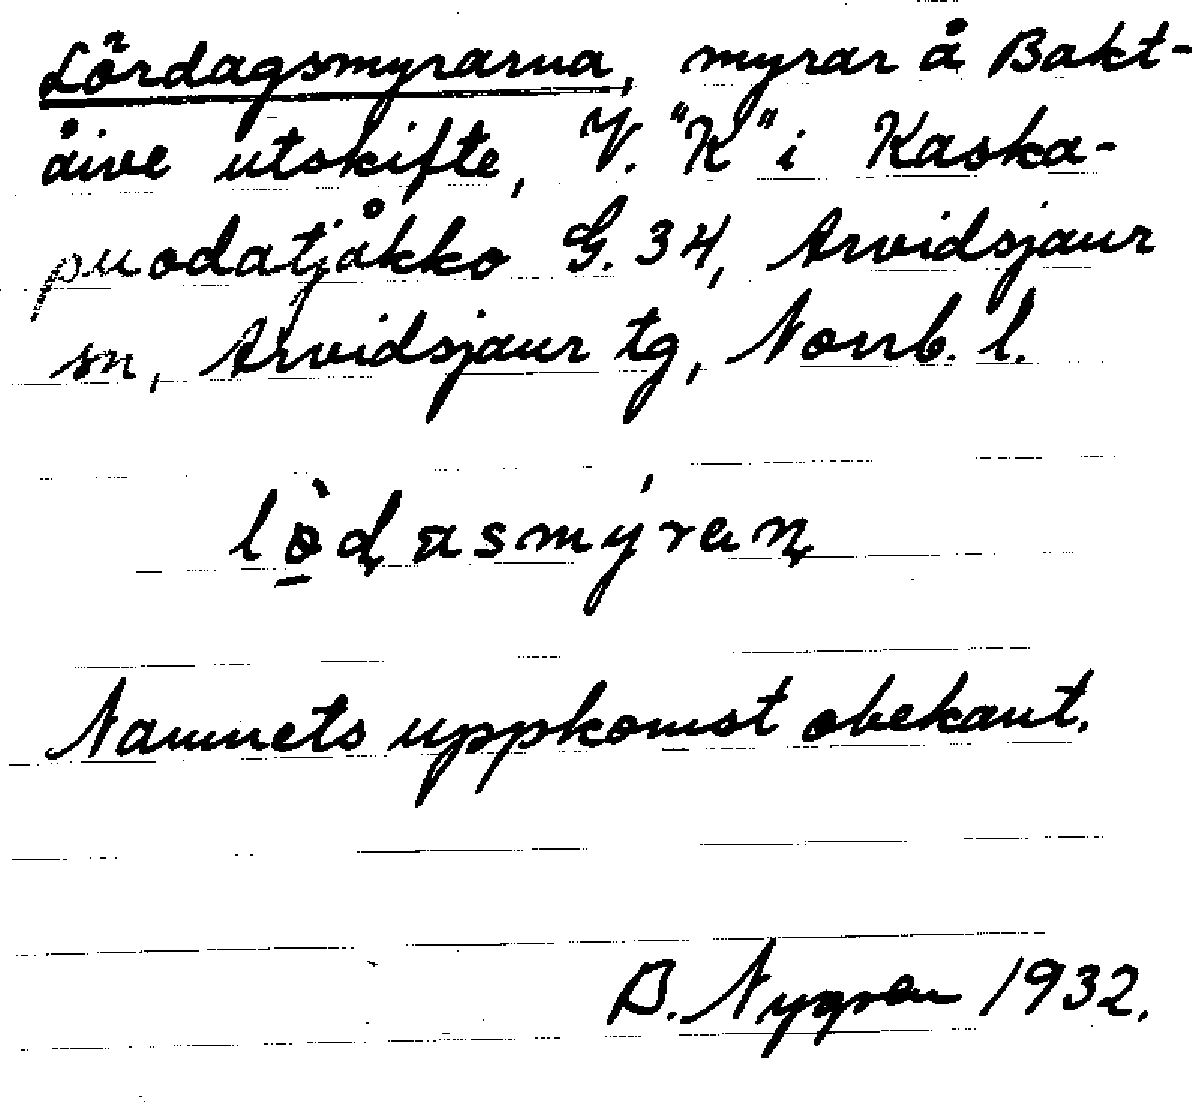 Lördagsmyrarna, myrar å Bakt-
åive utskifte, V. "K" i Kaska-
puodatjåkko G. 34, Arvidsjaur
sn, Arvidsjaur tg, Norrb. l.
lö̀ḍasmýraṇ
Namnets uppkomst obekant.
B. Nygren 1932.